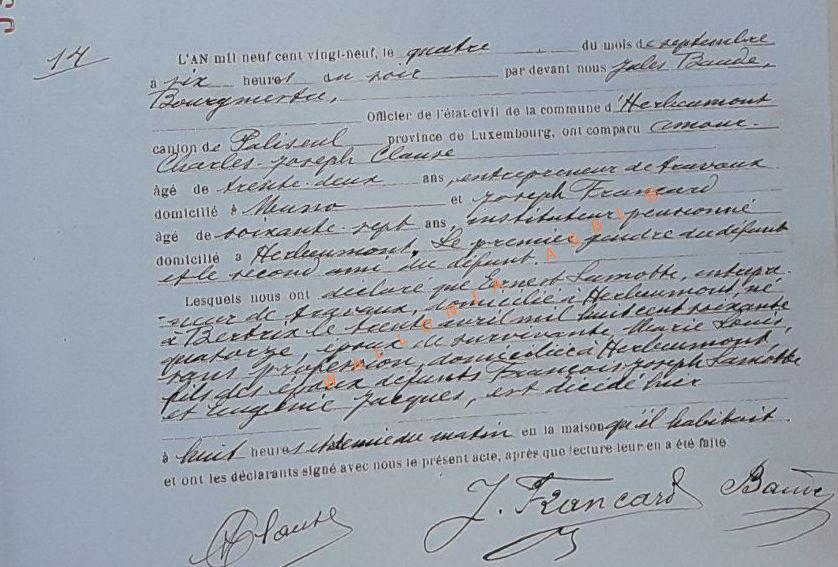 14
L'AN mil neuf cent vingt-neuf, le quatre du mois de septembre
à six heures du soir par devant nous Jules Baude,
Bourgmestre,
Officier de l'état-civil de la commune d'Herbeumont
canton de Paliseul province de Luxembourg, ont comparu Amour-
Charles-Joseph Clause
âgé de trente-deux ans, entrepreneur de travaux
domicilié à Muno et Joseph Francard
âgé de soixante-sept ans, instituteur pensionné
domicilié à Herbeumont. Le premier gendre du défunt
et le second ami du défunt
Lesquels nous ont déclaré que Ernest Lamotte, entrepre-
neur de travaux, domicilié à Herbeumont né
à Bertrix le trente avril mil huit cent soixante
quatorze, époux de survivante, Marie Louis,
sans profession, domiciliée à Herbeumont,
fils des époux défunts François Joseph Lamotte
et Eugénie Jacques, est décédé hier
à huit heures et demie du matin en la maison qu'il habitait.
et ont les déclarants signé avec nous le présent acte, après que lecture leur en a été faite.
Clause J. Francard Baude
WALLONIA ASBL